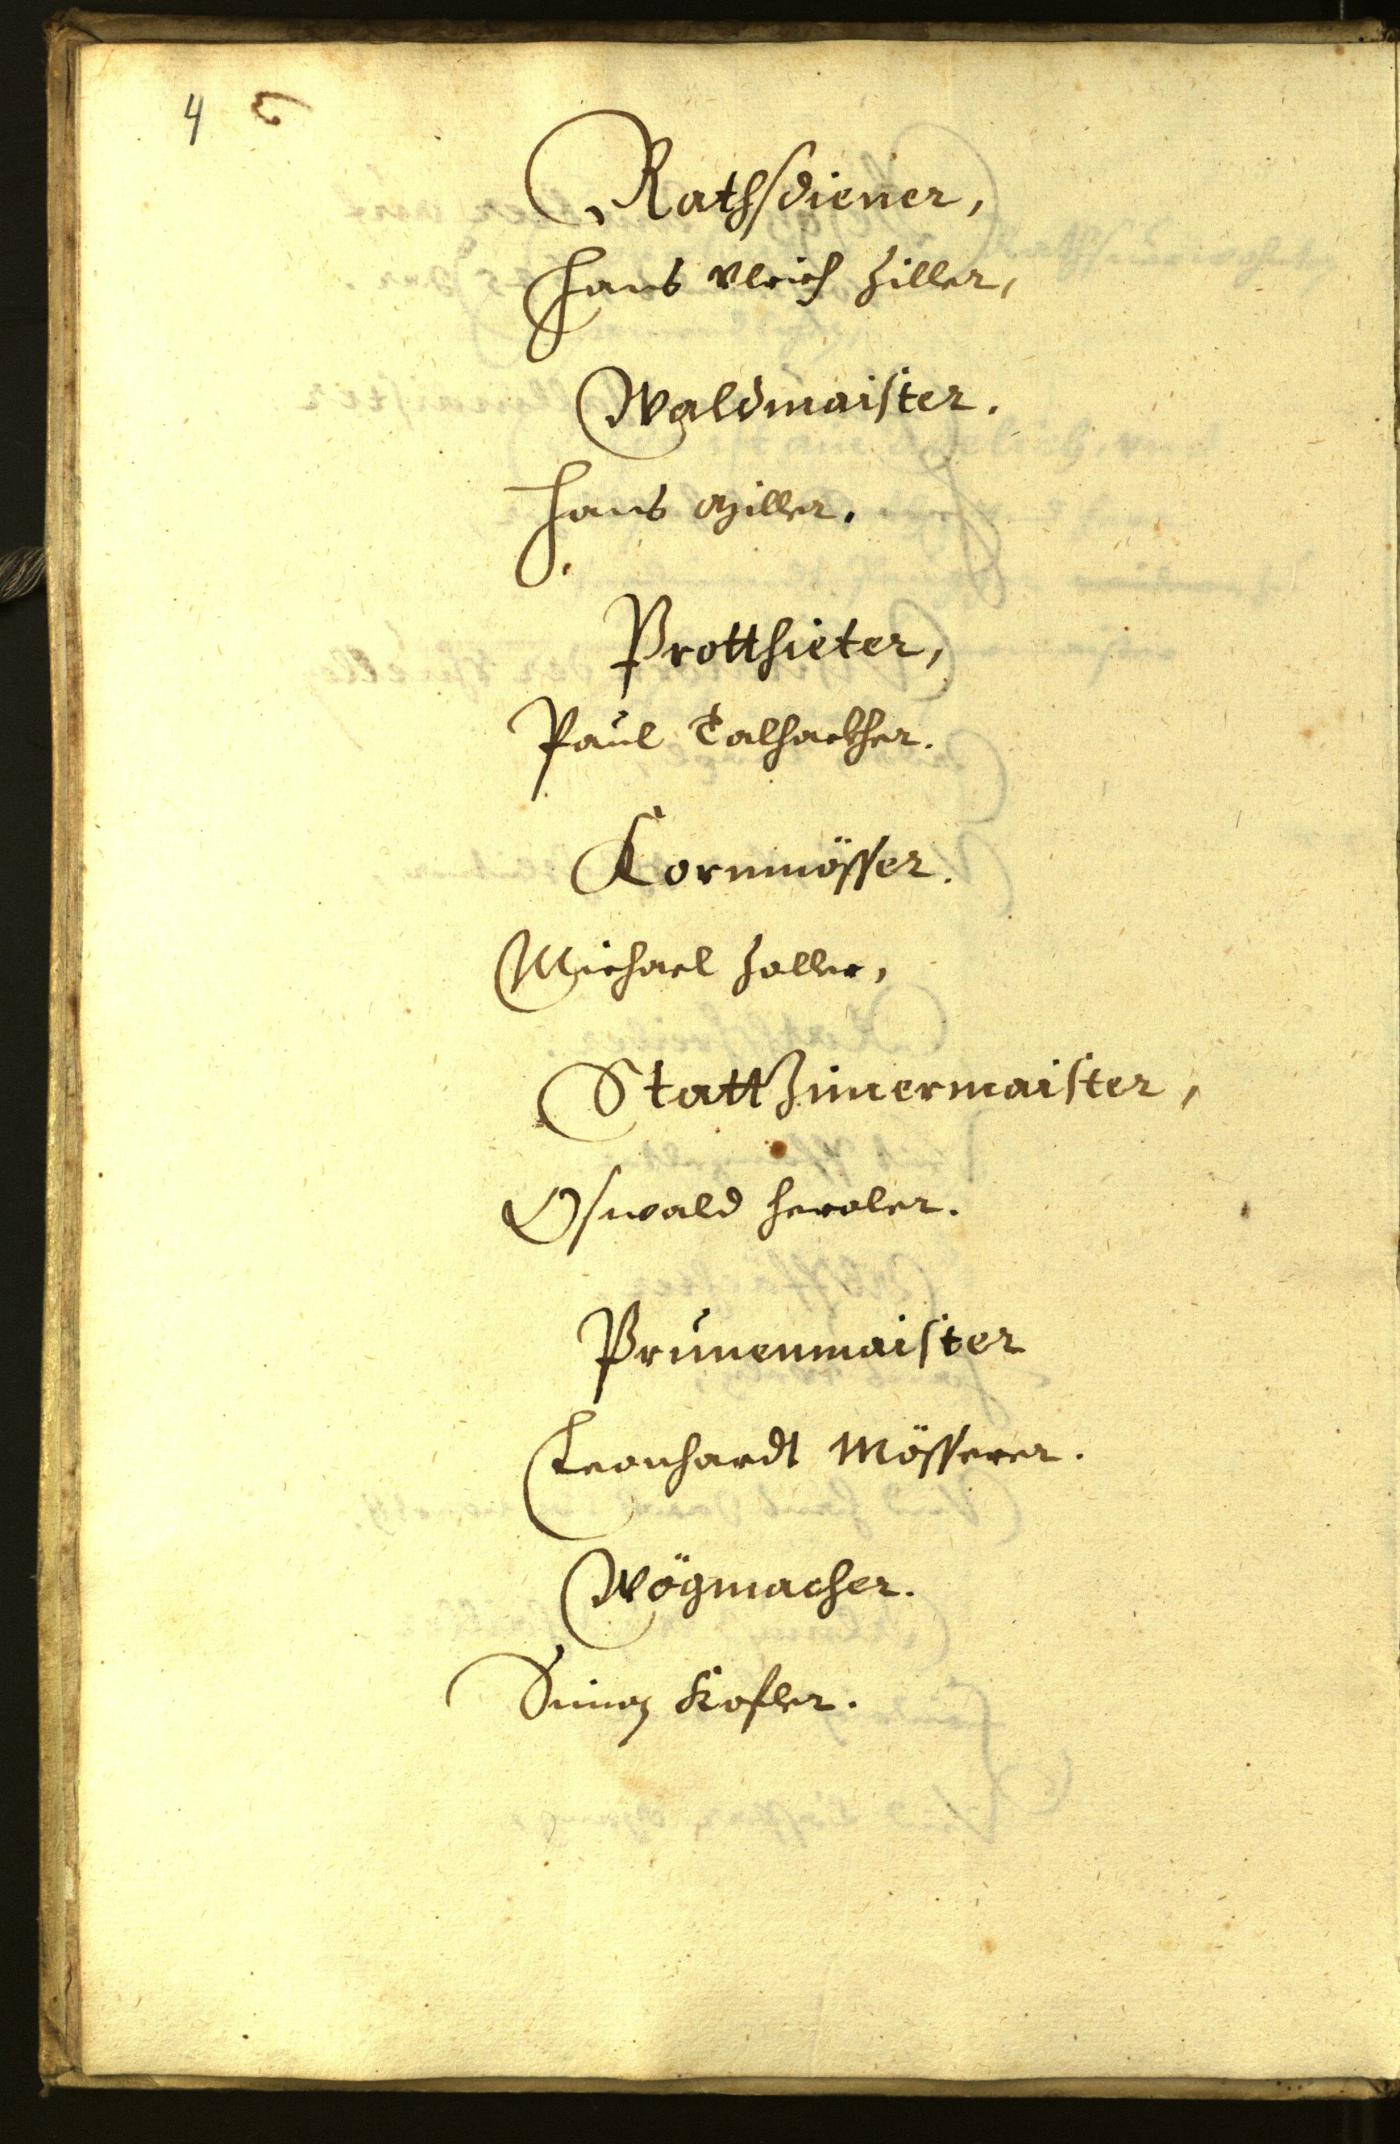 4
Rathsdiener,
Hans Vlrich Ziller,
Waldmaister.
Hans Miller.
Protthieter,
Paul Talhackher.
Kornmösser.
Michael Zoller,
Statt Zimermaister,
Oswald Heroler.
Prunenmaister
Leonhardt Mösserer.
Wögmacher.
Simon Kofler.